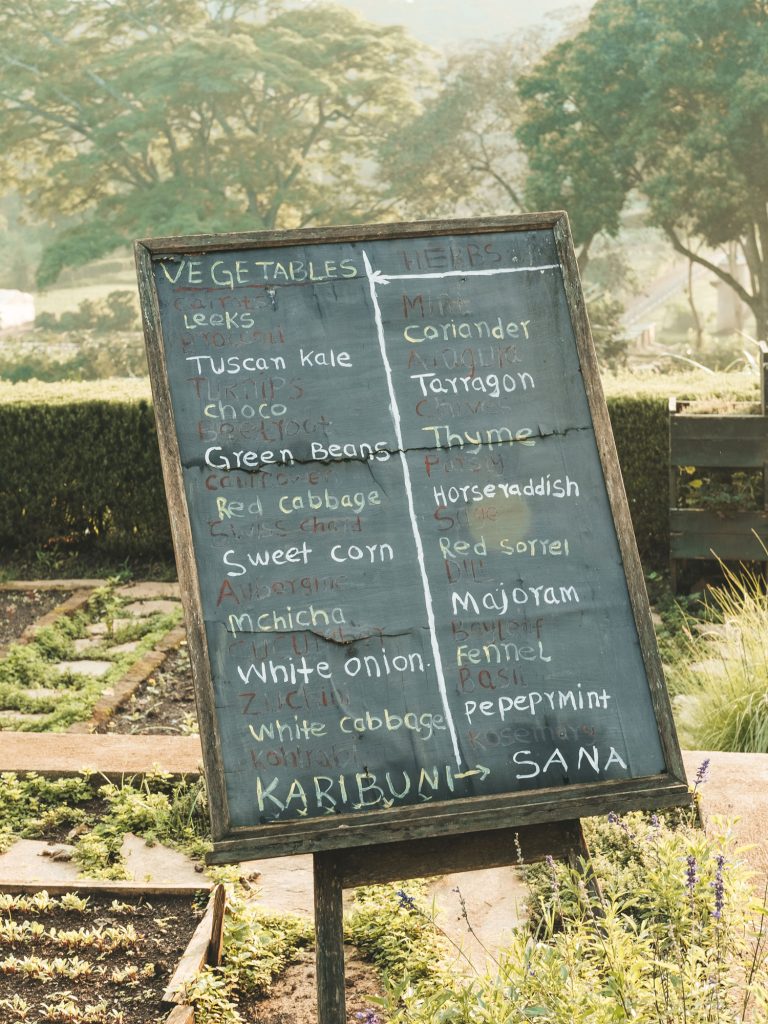 VEGETABLES
carrots
Leeks
broccoli
Tuscan kale
TURNIPS
choco
Beetroot
Green Beans
Red cabbage
Swiss chard
Sweet corn
Aubergine
Mchicha
Cucumber
White onion
Zuchini
White cabbage
Kohlrabi
HERBS
Mint
coriander
Arugula
Tarragon
Chives
Thyme
Parsly
Horseraddish
Sage
Red sorrel
DILL
Majoram
Bayleaf
Fennel
Basil
pepepyrmint
Rosemary
KARIBUNI → SANA